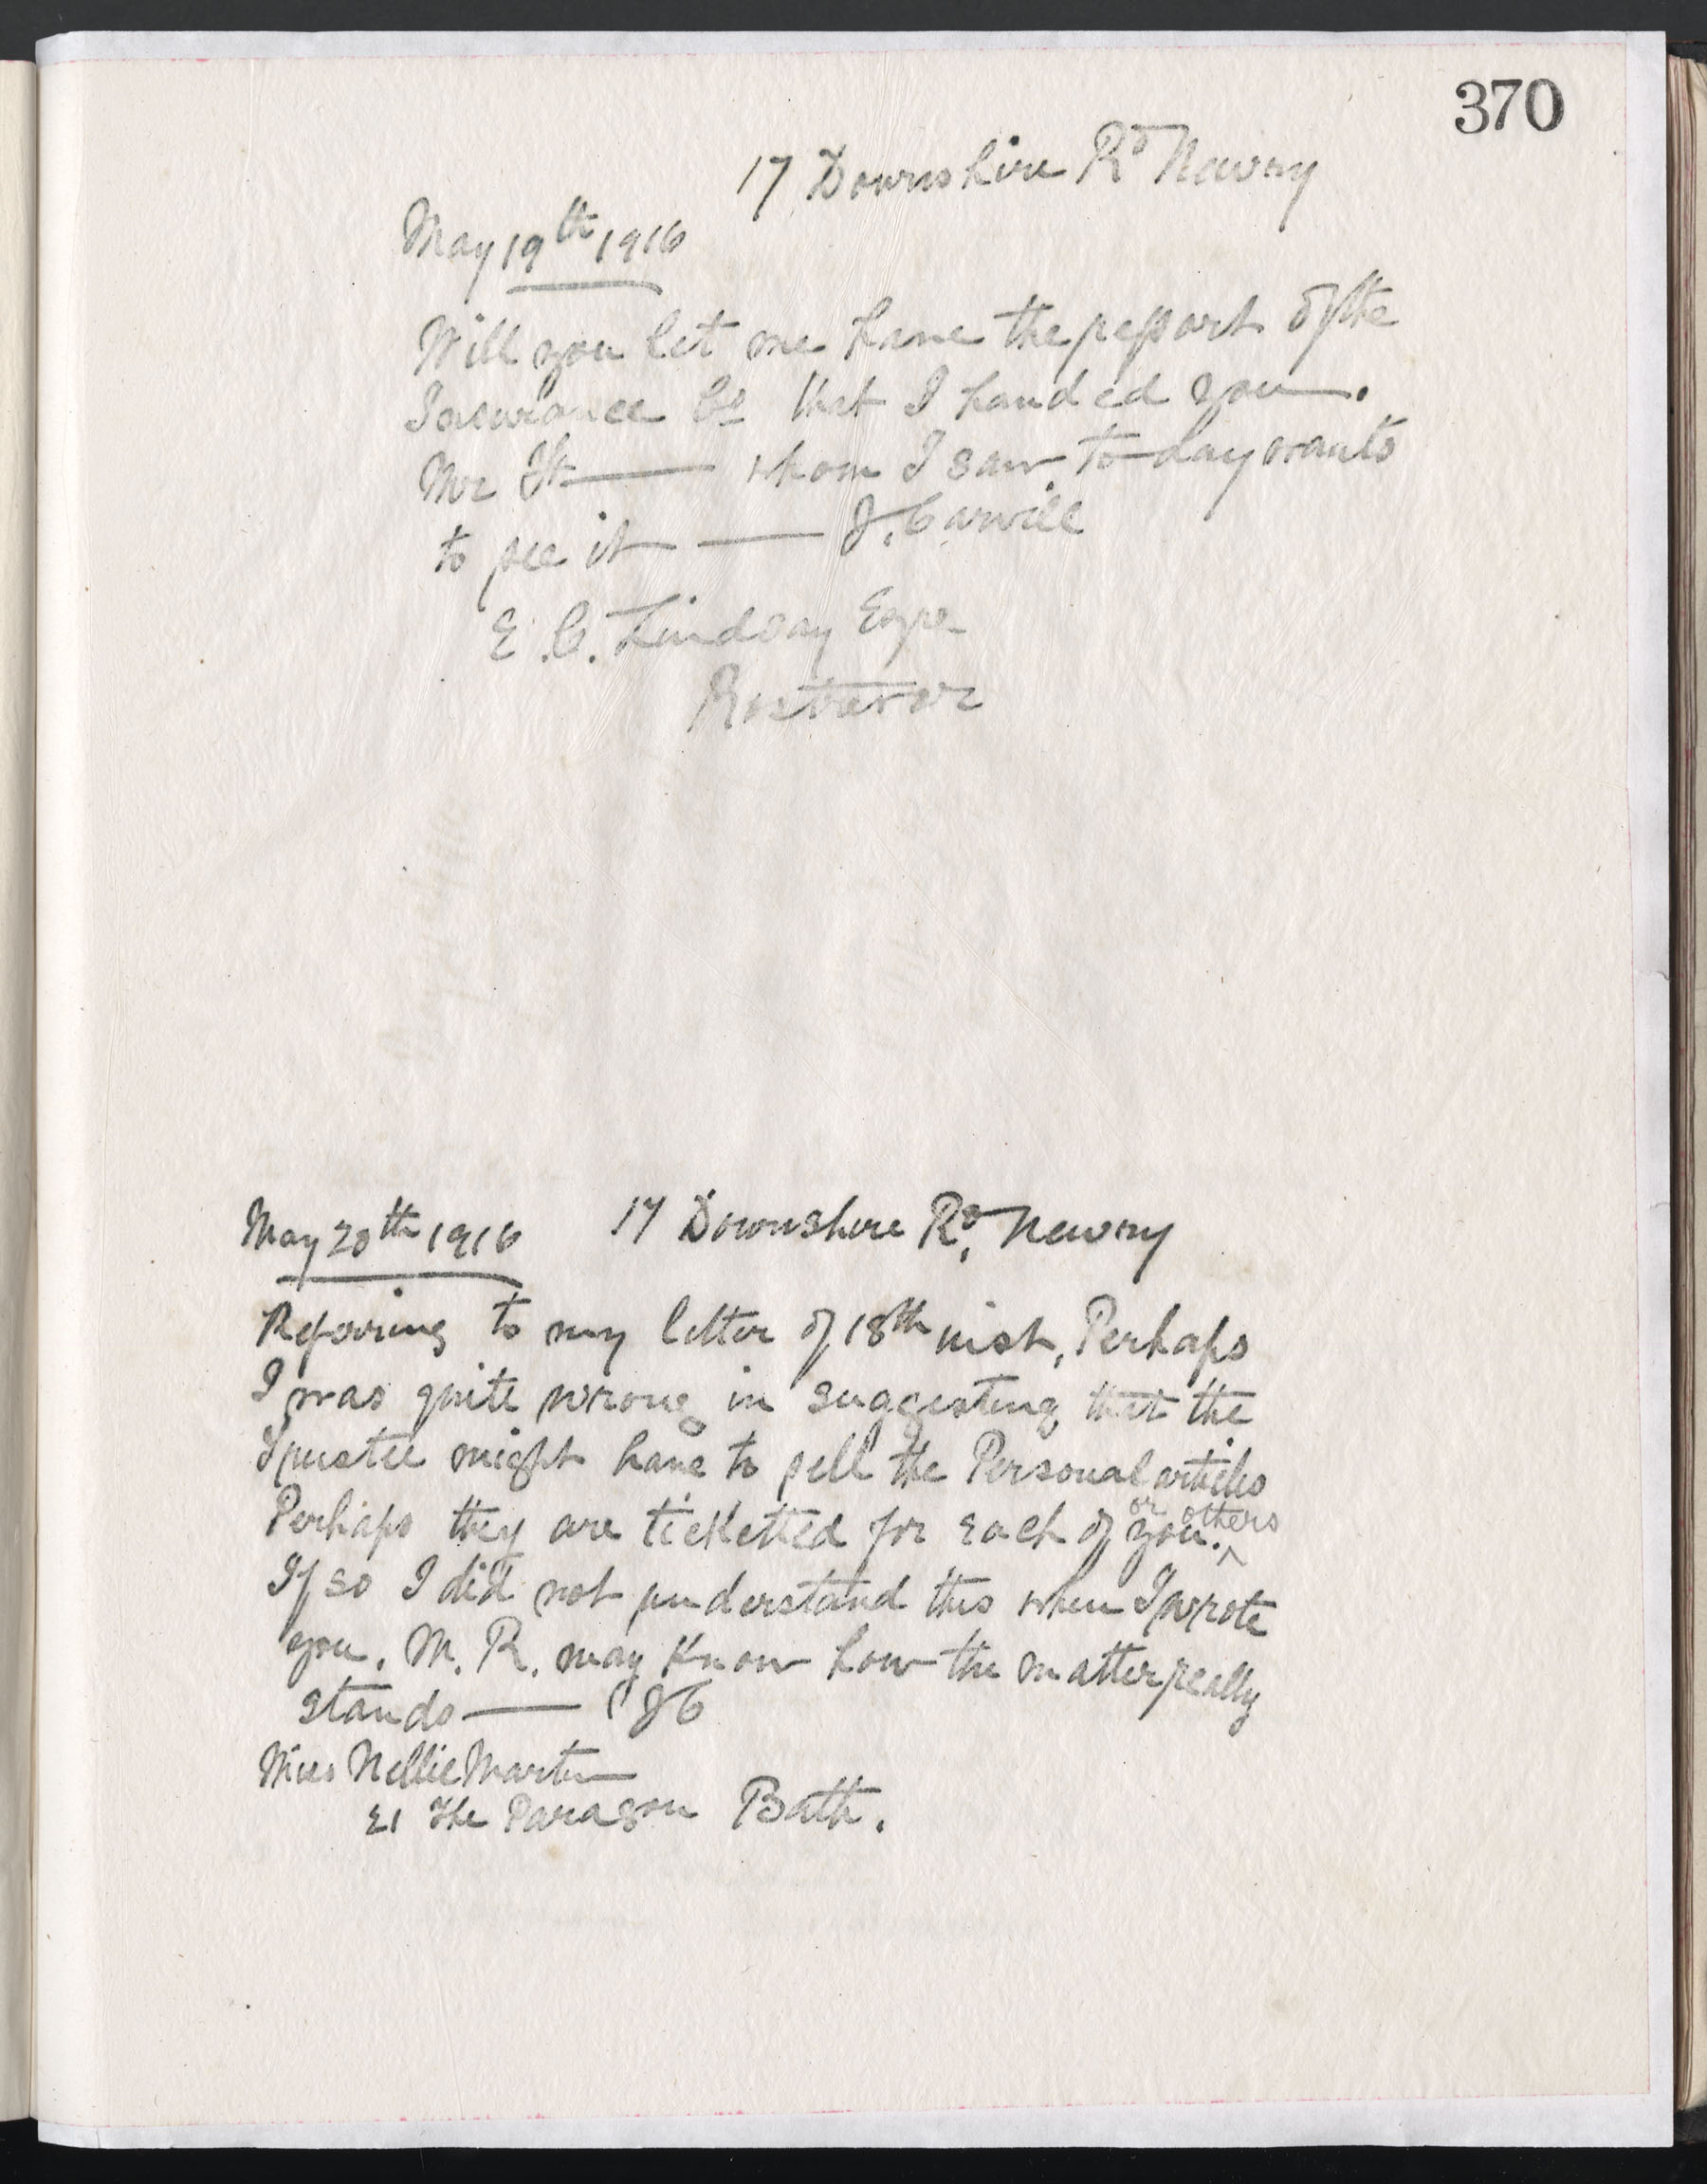 370
17 Downshire Rd Newry
May 19th 1916
Will you let me have the report of the
Insurance Co that I handed you.
Mr H—— whom I saw to-day wants
to see it —— J. Carvill
E. C. Lindsay Esqre
Rostrevor
May 20th 1916 17 Downshire Rd, Newry
Refering to my letter of 18th inst, Perhaps
I was quite wrong in suggesting that the
Trustee might have to sell the Personal articles
Perhaps they are ticketted for each of you. or others
If so I did not understand this when I wrote
you. M. R. may know how the matter really
stands —— JC
Miss Nellie Martin
21 The Paragon Bath.